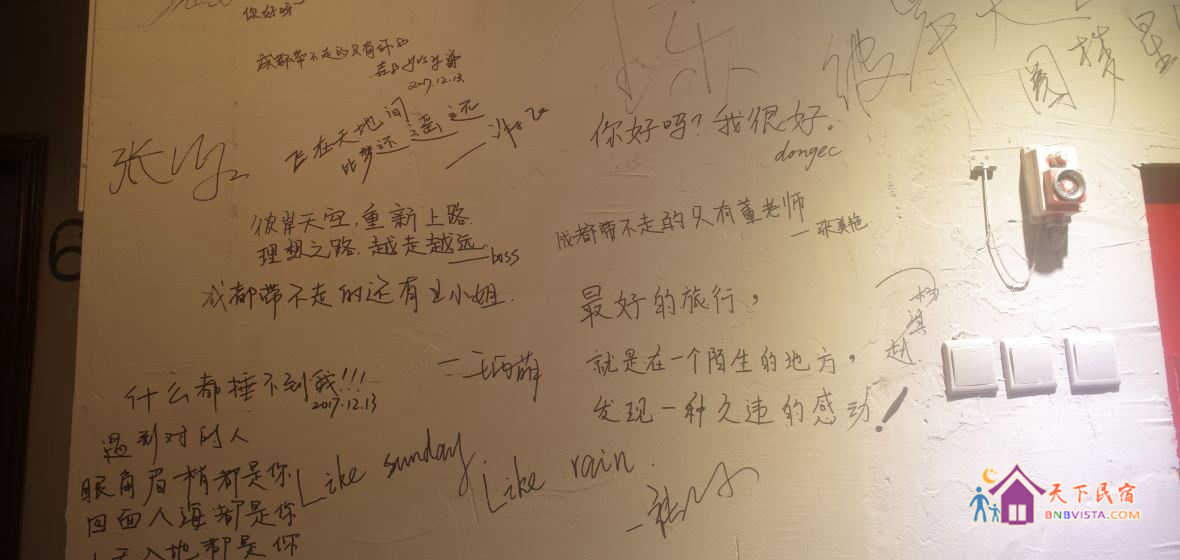 你好呀~
成都带不走的只有你的
2017.12.13
飞在天地间
比梦还遥远
张
你好吗？我很好。
dongec
彼岸天
圆梦星
6
彼岸天空，重新上路
理想之路，越走越远
——boss
成都带不走的只有董老师
—张美艳
成都带不走的还有王小姐
最好的旅行，
就是在一个陌生的地方，
发现一种久违的感动！
什么都捶不到我!!!
2017.12.13
遇到对的人
眼角眉梢都是你
四面人海都是你
上天入地都是你
Like sunday
Like rain.
天下民宿
BNBVISTA.COM